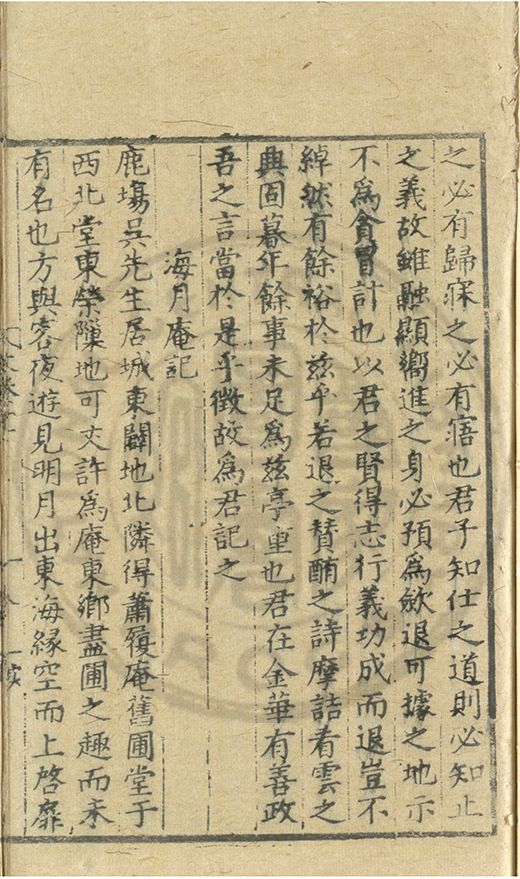 之必有歸寐之必有寤也君子知仕之道則必知止
之義故雖融顯嚮進之身必預為斂退可據之地示
不為貪冒計也以君之賢得志行義功成而退豈不
綽然有餘裕於茲乎若退之贊酺之詩摩詰看雲之
興固暮年餘事未足為茲亭重也君在金華有善政
吾之言當於是乎徵故為君記之
海月庵記
鹿塲吳先生居城東闢地北隣得蕭履庵舊圃堂于
西北堂東榮隙地可丈許為庵東鄉盡圃之趣而未
有名也方與客夜遊見明月出東海緣空而上啓扉